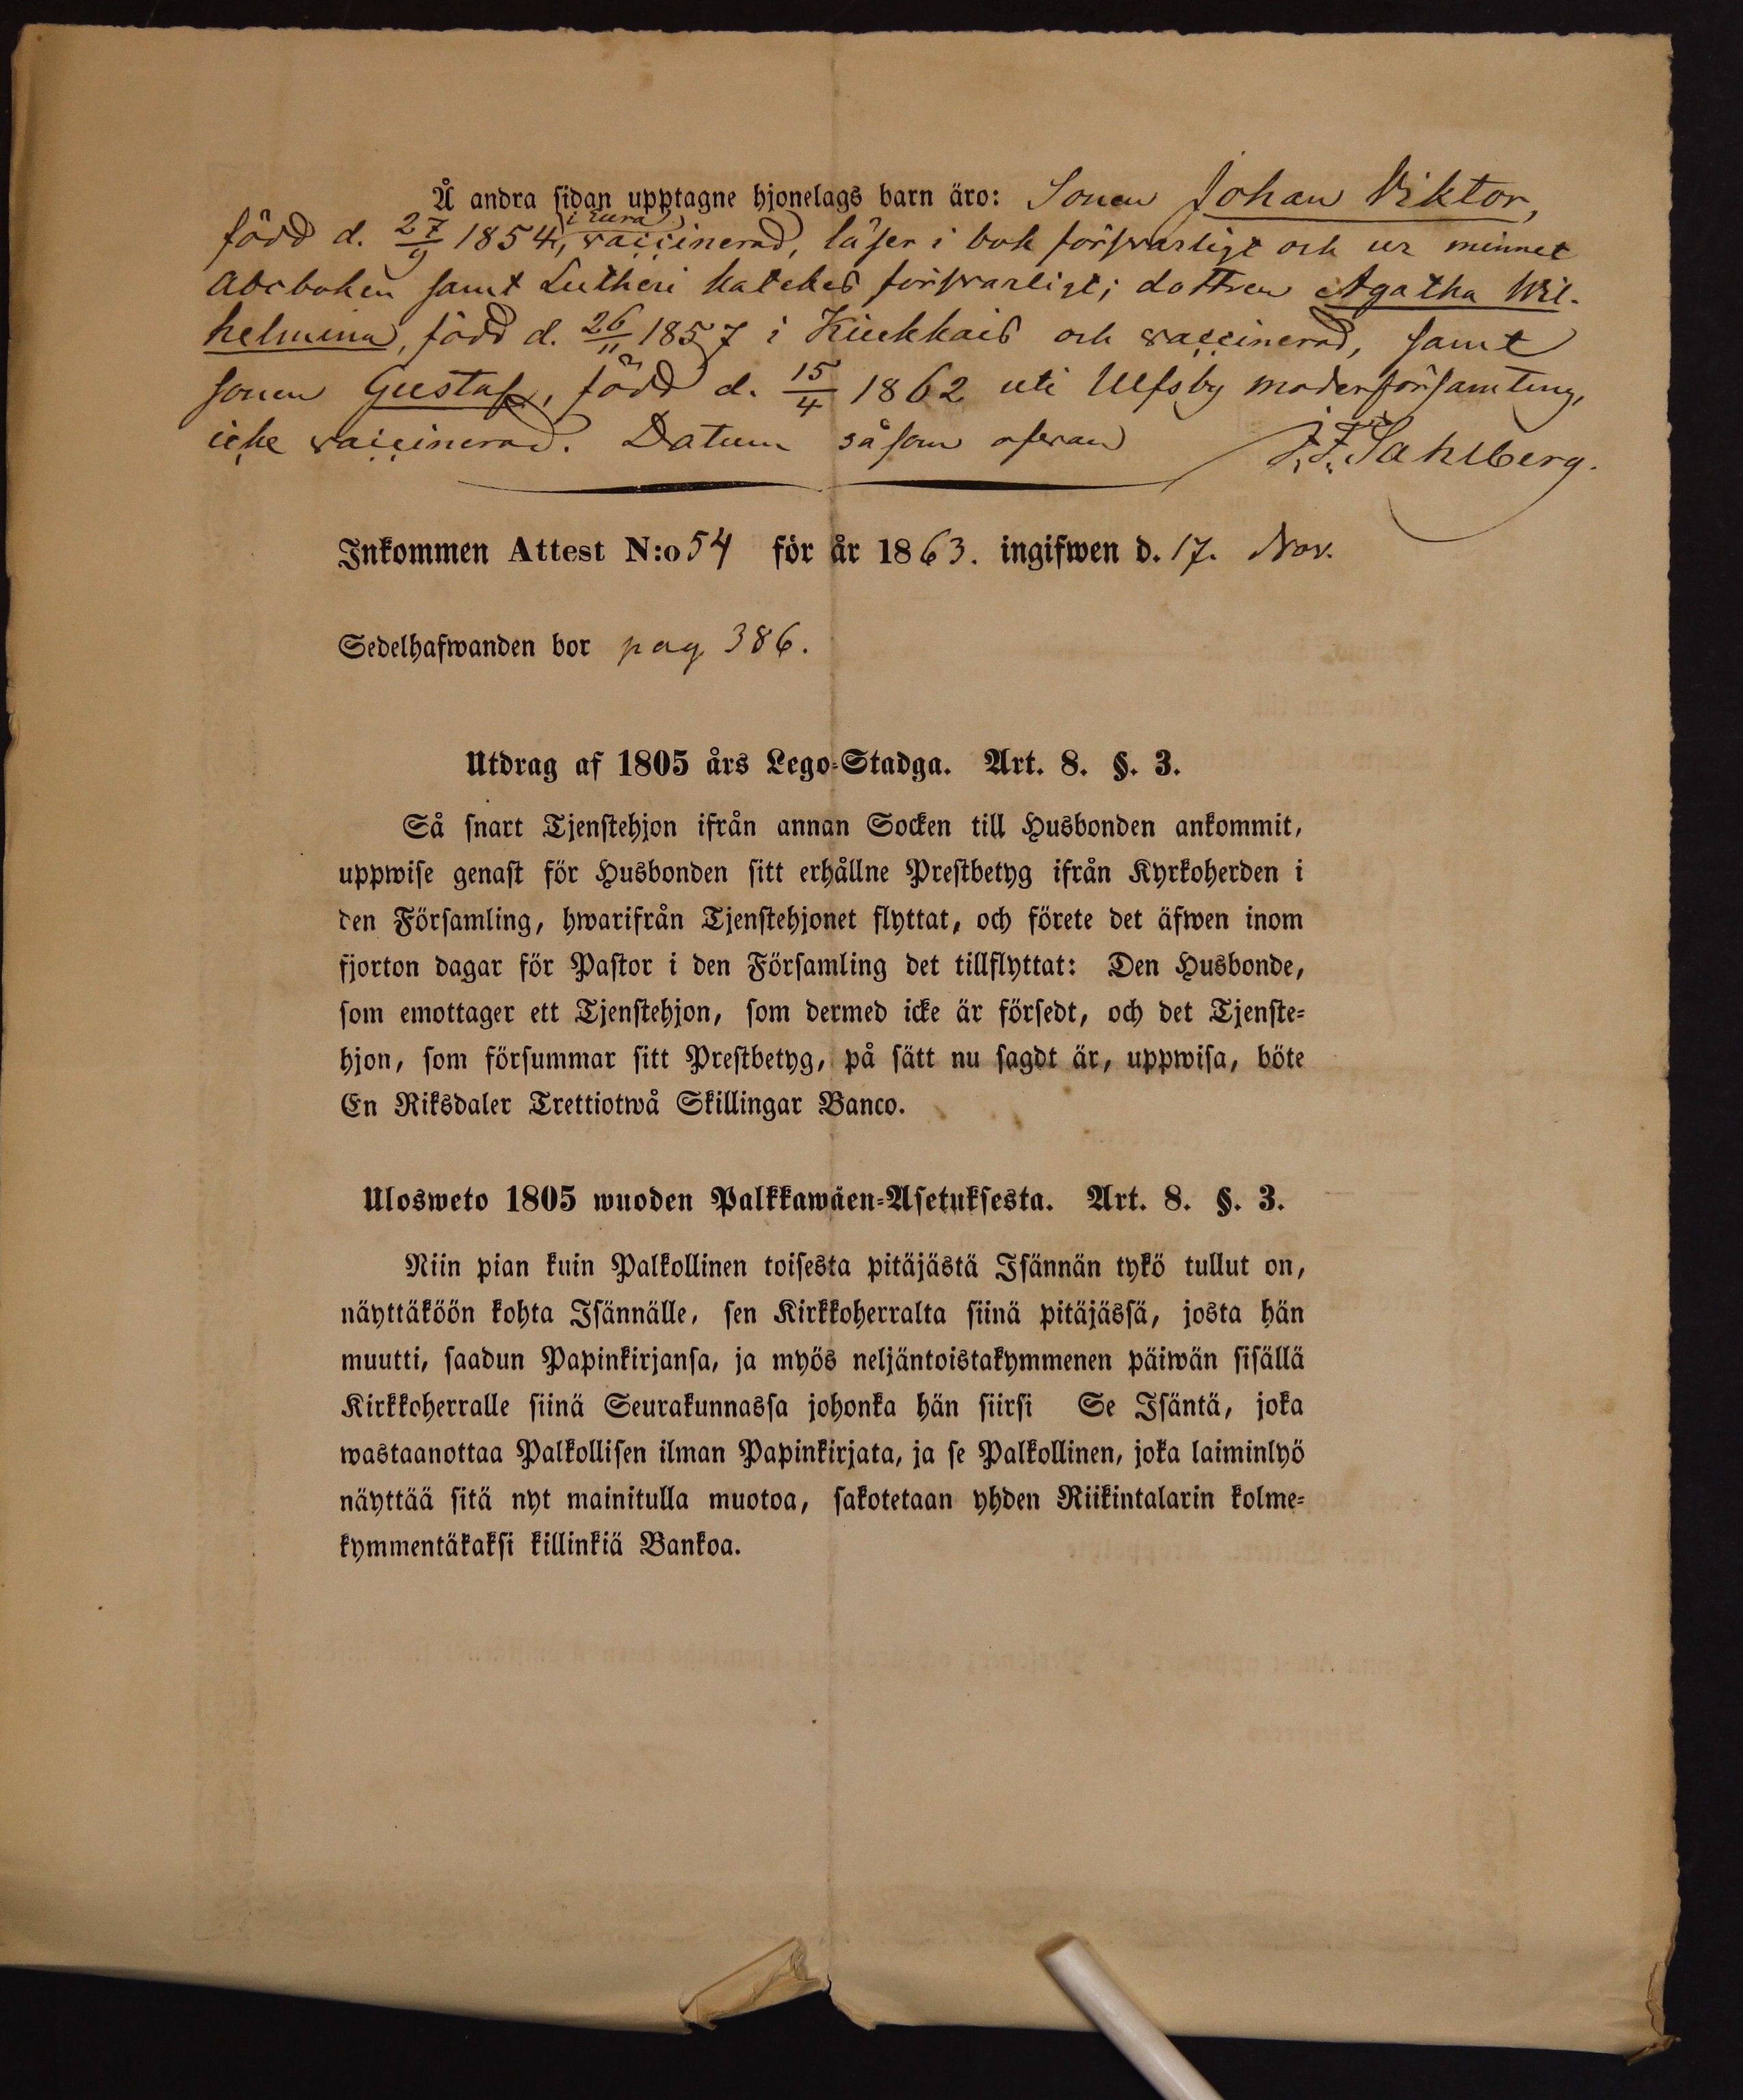 Å andra sidan upptagne hjonelags barn äro: Sonen Johan Viktor,
i Eura
född d. 27/9 1854, vaccinerad, läser i bok försvarligt och ur minnet
Abcboken samt Lutheri kateches försvarligt; dottren Agatha Wil-
helmina, född d. 26/11 1857 i Kiukkais och vaccinerad, samt
sonen Gustaf, född d. 15/4 1862 uti Ulfsby moderförsamling,
icke vaccinerad. Datum såsom ofvan
J. F. Sahlberg.
Inkommen Attest N:o 54 för år 1863. ingifwen d. 17. Nov.
Sedelhafwanden bor pag 386.
Utdrag af 1805 års Lego-Stadga. Art. 8. §. 3.
Så snart Tjenstehjon ifrån annan Socken till Husbonden ankommit,
uppwise genast för Husbonden sitt erhållne Prestbetyg ifrån Kyrkoherden i
den Församling, hwarifrån Tjenstehjonet flyttat, och förete det äfwen inom
fjorton dagar för Pastor i den Församling det tillflyttat: Den Husbonde,
som emottager ett Tjenstehjon, som dermed icke är försedt, och det Tjenste-
hjon, som försummar sitt Prestbetyg, på sätt nu sagdt är, uppwisa, böte
En Riksdaler Trettiotwå Skillingar Banco.
Ulosweto 1805 wuoden Palkkawäen-Asetuksesta. Art. 8. §. 3.
Niin pian kuin Palkollinen toisesta pitäjästä Isännän tykö tullut on,
näyttäköön kohta Isännälle, sen Kirkkoherralta siinä pitäjässä, josta hän
muutti, saadun Papinkirjansa, ja myös neljäntoistakymmenen päiwän sisällä
Kirkkoherralle siinä Seurakunnassa johonka hän siirsi Se Isäntä, joka
wastaanottaa Palkollisen ilman Papinkirjata, ja se Palkollinen, joka laiminlyö
näyttää sitä nyt mainitulla muotoa, sakotetaan yhden Riikintalarin kolme-
kymmentäkaksi killinkiä Bankoa.